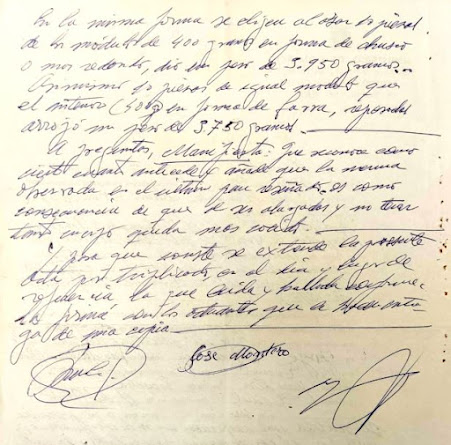 En la misma forma se eligen al azar 10 piezas
de los módulos de 400 grans en forma de chusco
o mas redondo, dio un peso de 3.950 gramos.-
Asimismo 10 piezas de igual modulo que
el anterior (500) en forma de barra, repondas
arrojó un peso de 3.750 gramos.
A preguntas, Manifiesta: Que reconoce como
cierto cuanto antecede y añade que la merma
observada en el ultimo pan reseñado, es como
consecuencia de que al ser alargadas y no tener
tanto cuerpo queda mas cocido.
Y para que conste se extiende la presente
Acta por triplicado, en el dia y lugar de
referencia, la que leida y hallada conforme
la firma, con los actuantes, que le hacen entre-
ga de una copia.
Jose Monstero